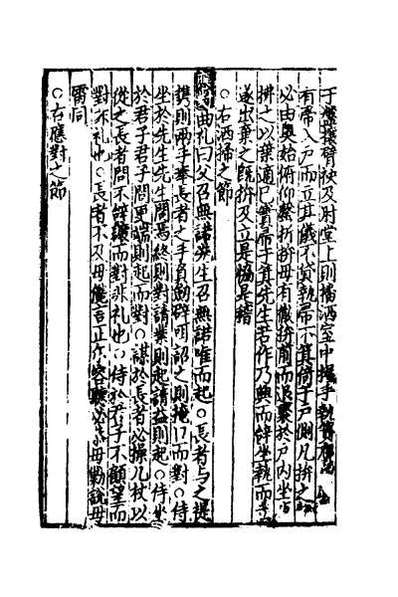 于盤攘臂袂及肘堂上則播洒室中握手執箕膺
有帚入戶而立其儀不忒執帚下箕倚于戶側凡拚之紀
必由奧始俯仰磬折拚毋有徹拚前而退聚於戶內坐板
排之以葉適己實帚于箕先生若作乃興而辭坐執而立
遂出棄之既拚反立是協是稽
○右洒掃之節
曲礼曰父召無諾先生召無諾唯而起○長者与之提
携則兩手奉長者之手負劒辟咡詔之則掩口而對○侍
坐於先生先生問焉終則對請業則起請益則起○侍坐
於君子君子問更端則起而對○謀於長者必操几杖以
從之長者問不辭讓而對非礼也○侍於君子不顧望而
對非礼也○長者不及毋儳言正尔容聽必恭毋勦說毋
雷同
○右應對之節